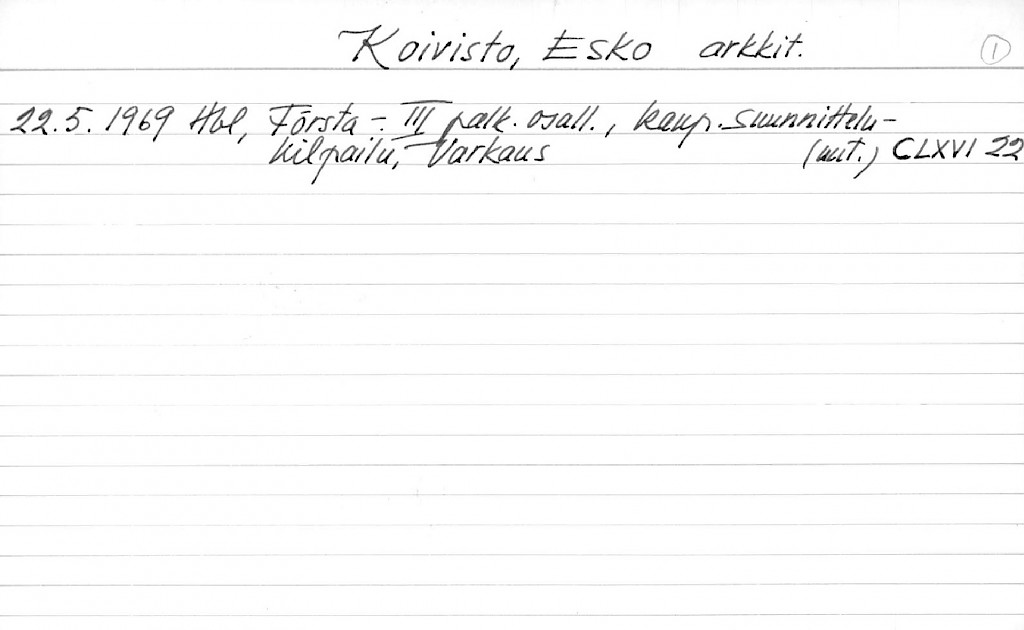 Koivisto, Esko arkkit. 1
22.5.1969 Hbl, Första - III palk. osall., kaup. suunnittelu-
kilpailu, Varkaus (uut.) CLXVI 22